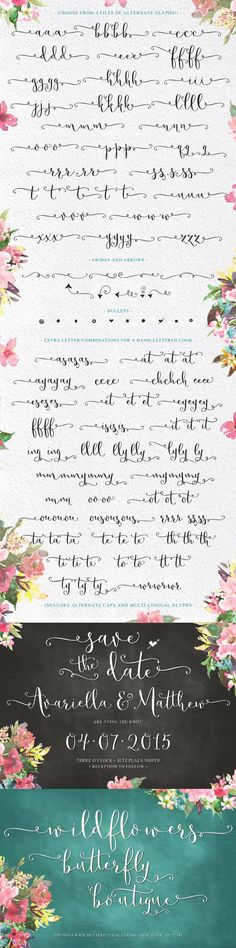 CHOOSE FROM 4 FILES OF ALTERNATE GLYPHS!!
aaa bbbb ccc
ddd eee ffff
gggg hhhh iii
jjjj kkkk llll
mmm nnn
ooo ppp qqq
rrr rr sssss
t t t t t uuu
vvv www
xxx yyyy zzzz
- SWIRLS AND ARROWS -
- BULLETS -
- EXTRA LETTER COMBINATIONS FOR A HAND-LETTERED LOOK -
asasas at at at
ayayay ccec chchch eeee
eseses et et et eyeyey
ffff isisis it it it
ing ing llll llylly lyly ly
mmmmymmy mymymy
nnnn oooo ot ot ot
ououou ousousous rrrr ssss
ta ta ta te te te th th th
ti ti ti to to to tt tt tt
ty ty ty wrwrwr
- INCLUDES ALTERNATE CAPS AND MULTI-LINGUAL GLYPHS -
save
the date
Avariella & Matthew
ARE TYING THE KNOT!
04·07·2015
THREE O'CLOCK • RITZ PLAZA NORTH
• RECEPTION TO FOLLOW •
wildflowers
butterfly
boutique